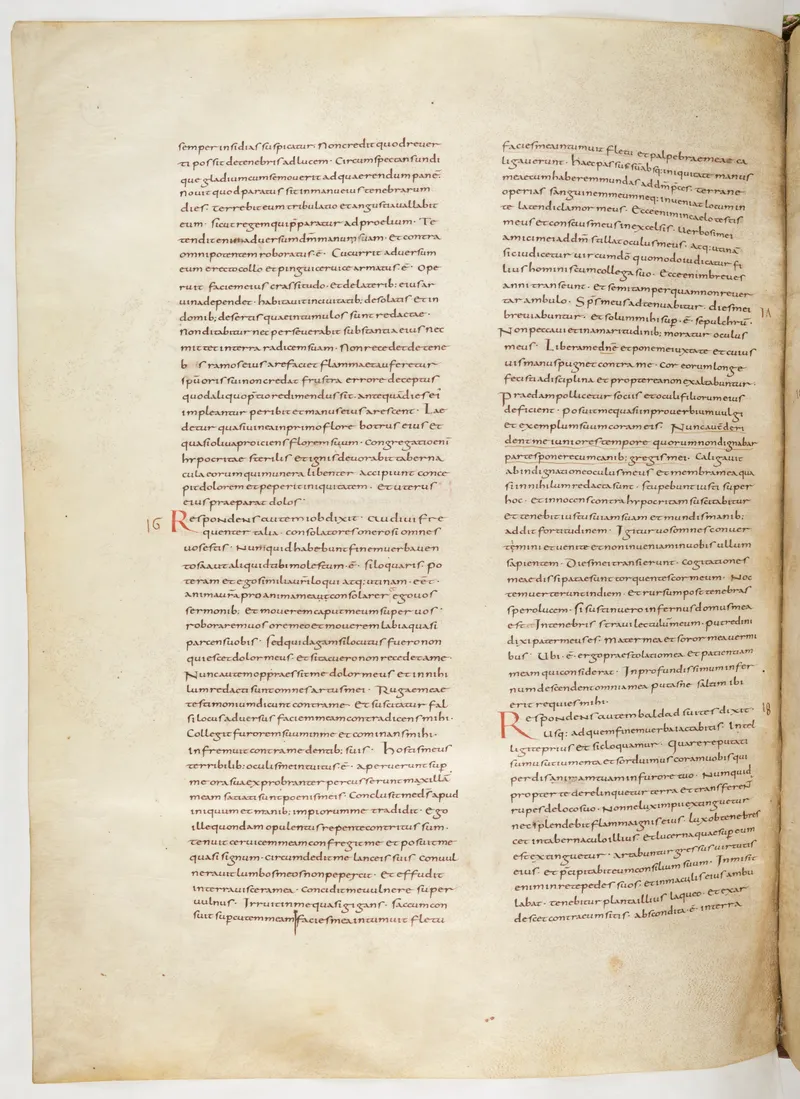 semper insidias suspicatur; Non credit quod reuer
ti possit de tenebris ad lucem · Circumspectans undi
que gladium cum se mouerit ad quaerendum pane ·
nouit quod paratus sit in manu eius tenebrarum
dies · terrebit eum tribulatio et angustia uallabit
eum · sicut regem qui pparatur ad proelium · Te
tendit enim aduersum dm manum suam · et contra
omnipotentem roboratus ē · Cucurrit aduersum
eum erecto collo et pingui ceruice armatus ē · Ope
ruit faciem eius crassitudo · et de laterib; eius ar
uina dependet · habitauit in ciuitatib; desolatis et in
domib; desertis quae in tumulos sunt redactae ·
Non ditabitur nec perseuerabit substantia eius nec
mittet in terra radicem suam · Non recedet de tene
b s ramos eius arefaciet flamma et auferetur
spu oris sui non credat frustra errore deceptus
quod aliquo ptio redimendus sit · antequā dies ei
impleantur peribit et manus eius arescent · Lae
detur quasi uinea in primo flore botrus eius et
quasi oliua proiciens florem suum · Congregatio eni
hypocritae sterilis et ignis deuorabit taberna
cula eorum qui munera libenter accipiunt conce
pit dolorem et peperit iniquitatem · et uterus
eius praeparat dolos ·
16 Respondens autem iob dixit · audiui fre
quenter talia · consolatores onerosi omnes
uos estis · Numquid habebunt finem uerba uen
tosa aut aliquid tibi molestum ē · si loquaris · po
teram et ego similia uri loqui atq; utinam · eēt ·
anima ura pro anima mea ut consolarer et ego uos
sermonib; et mouerem caput meum super uos ·
roborarem uos ore meo et mouerem labia quasi
parcens uobis · sed quid agam si locutus fuero non
quiescet dolor meus · et si tacuero non recedet a me ·
Nunc autem oppraessit me dolor meus et in nihi
lum redacti sunt omnes artus mei · Rugae meae
testimonium dicunt contra me · et suscitatur fal
silocus aduersus faciem meam contradicens mihi ·
Collegit furorem suum in me et comitans mihi ·
infremuit contra me dentib; suis · hostis meus
terribilib; oculis me intuitus ē · aperuerunt sup
me ora sua exprobrantes percusserunt maxillā
meam satiati sunt poenis meis · Conclusit me ds apud
iniquum et manib; impiorum me tradidit · ego
ille quondam opulentus repente contritus sum ·
tenuit ceruicem meam confregit me et posuit me
quasi signum · circumdedit me lanceis suis conuul
nerauit lumbos meos non pepercit · et effudit
in terra uiscera mea · Concidit me uulnere super
uulnus · Irruit in me quasi gigans · saccum con
sui sup cutem meam facies mea intumuit fletu
facies mea intumuit fletu et palpebrae meae ca
ligauerunt · haec passus sū absq; iniquitate manus
meae cum haberem mundas ad dm pces · terra ne
operias sanguinem meum neq; inueniat locum in
te latendi clamor meus · Ecce enim in caelo testis
meus et conscius meus in excelsis · uerbosi mei
amici mei ad dm stillat oculus meus · atq; utinā
sic iudicetur uir cum dō quomodo iudicatur fi
lius hominis cum collega suo · Ecce enim breues
anni transeunt · et semitam per quam non reuer
tar ambulo · Sps meus adtenuabitur dies mei
breuiabuntur · et solum mihi sup · ē · sepulchrū ·
Non peccaui et in amaritudinib; moratur oculus
meus · Libera me dne et pone me iuxta te et cuius
uis manus pugnet contra me · Cor eorum longe
fecisti a disciplina et propterea non exaltabuntur ·
Praedam pollicetur sociis et oculi filiorum eius
deficient · posuit me quasi in prouerbium uulgi
et exemplum sum coram eis · Nunc autē deri
dent me iuniores tempore quorum non dignabar
partes ponere cum canib; gregis mei · Caligauit
ab indignatione oculus meus et membra mea qua
si in nihilum redacta sunt · stupebunt iusti super
hoc · et innocens contra hypocritam suscitabitur
et tenebit iustus uiam suam et mundis manib;
addit fortitudinem · Igitur uos omnes conuer
temini et uenite et non inueniam in uobis ullum
sapientem · Dies mei transierunt · Cogitationes
meae dissipatae sunt torquentes cor meum · Noc
tem uerterunt in diem · et rursum post tenebras
spero lucem · si sustinuero infernus domus mea
est · In tenebris straui lectulum meum · putredini
dixi pater meus es · Mater mea et soror mea uermi
bus · Ubi · ē · ergo praestolatio mea et patientiam
meam qui considerat · In profundissimum infer
num descendent omnia mea putasne saltem ibi
erit requies mihi ·
18 Respondens autem baldad suites dixit ·
Usq; ad quem finem uerba iactabitis · Intel
ligite prius et sic loquamur · Quare reputati
sumus ut iumenta et sorduimus coram uobis qui
perdis animam tuam in furore tuo · Numquid
propter te derelinquetur terra et transferen
rupes de loco suo · Nonne lux impii exanguetur
nec splendebit flamma ignis eius · lux obtenebres
cet in tabernaculo illius · et lucerna quae sup eum
est exanguetur · artabuntur gressus uirtutis
eius · et pcipitabit eum consilium suum · Inmisit
enim in rete pedes suos · et in maculis eius ambu
labat · tenebitur planta illius laqueo · et exar
descet contra eum sitis · abscondita · ē · in terra